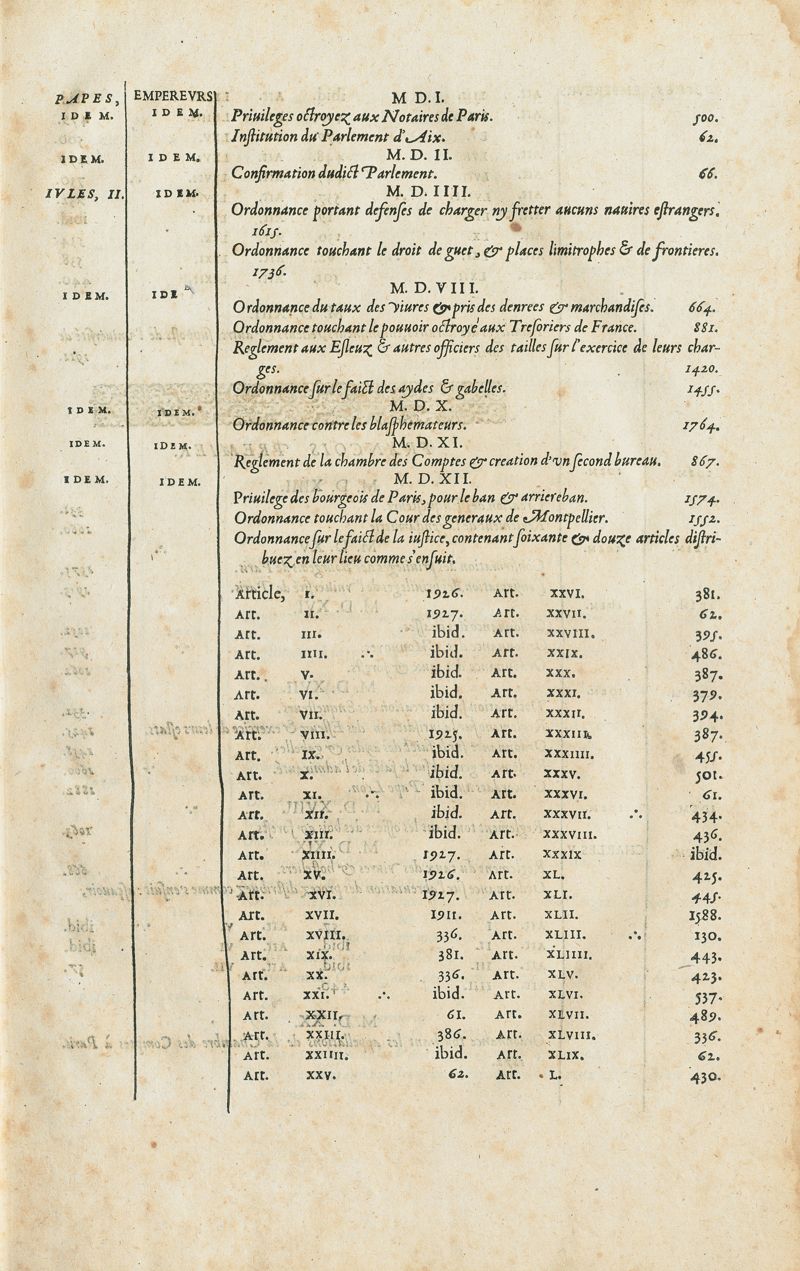 PAPES, EMPEREVRS M D. I.
IDEM. IDEM. Priuileges octroyez aux Notaires de Paris. 500.
Inſtitution du Parlement d'Aix. 62.
IDEM. IDEM. M. D. II.
Confirmation dudict Parlement. 66.
IVLES, II. IDEM. M. D. IIII.
Ordonnance portant defenſes de charger ny fretter aucuns nauires eſtrangers.
1615.
Ordonnance touchant le droit de guet, & places limitrophes & de frontieres.
1736.
IDEM. IDE M. D. VIII.
Ordonnance du taux des viures & pris des denrees & marchandiſes. 664.
Ordonnance touchant le pouuoir octroyé aux Treſoriers de France. 881.
Reglement aux Eſleuz & autres officiers des tailles ſur l'exercice de leurs char-
ges. 1420.
Ordonnance ſur le faict des aydes & gabelles. 1455.
IDEM. IDEM. M. D. X.
Ordonnance contre les blaſphemateurs. 1764.
IDEM. IDEM. M. D. XI.
Reglement de la chambre des Comptes & creation d'vn ſecond bureau. 867.
IDEM. IDEM. M. D. XII.
Priuilege des bourgeois de Paris, pour le ban & arriereban. 1574.
Ordonnance touchant la Cour des generaux de Montpellier. 1552.
Ordonnance ſur le faict de la iuſtice, contenant ſoixante & douze articles diſtri-
buez en leur lieu comme s'enſuit.
Article, I. 1926. Art. XXVI. 381.
Art. II. 1927. Art. XXVII. 62.
Art. III. ibid. Art. XXVIII. 395.
Art. IIII. ∴ ibid. Art. XXIX. 486.
Art. V. ibid. Art. XXX. 387.
Art. VI. ibid. Art. XXXI. 379.
Art. VII. ibid. Art. XXXII. 394.
Art. VIII. 1925. Art. XXXIII. 387.
Art. IX. ibid. Art. XXXIIII. 455.
Art. X. ibid. Art. XXXV. 501.
Art. XI. ∴ ibid. Art. XXXVI. 61.
Art. XII. ibid. Art. XXXVII. ∴ 434.
Art. XIII. ibid. Art. XXXVIII. 436.
Art. XIIII. 1927. Art. XXXIX ibid.
Art. XV. 1926. Art. XL. 425.
Art. XVI. 1927. Art. XLI. 445.
Art. XVII. 1911. Art. XLII. 1588.
Art. XVIII. 336. Art. XLIII. ∴ 130.
Art. XIX. 381. Art. XLIIII. 443.
Art. XX. 336. Art. XLV. 423.
Art. XXI. ∴ ibid. Art. XLVI. 537.
Art. XXII. 61. Art. XLVII. 489.
Art. XXIII. 386. Art. XLVIII. 336.
Art. XXIIII. ibid. Art. XLIX. 62.
Art. XXV. 62. Art. L. 430.